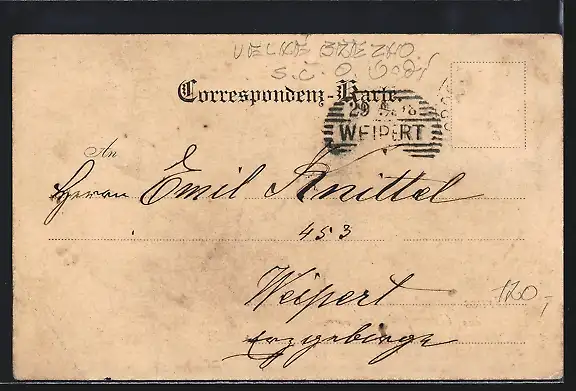 VELKÉ BŘEZNO
S.Č. O
Correspondenz-Karte.
29
WEIPERT
An
Herrn Emil Knittel
453
Weipert
120,-
Erzgebirge